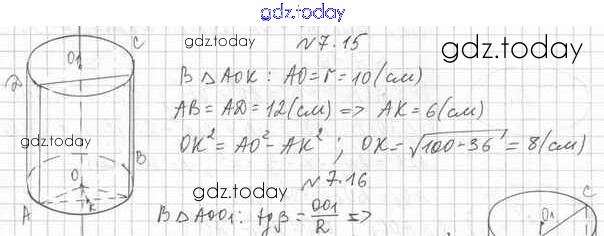 gdz.today
gdz.today
N7.15
gdz.today
В △AOK: AO = r = 10 (см)
AB = AD = 12 (см) => AK = 6 (см)
OK² = AO² - AK²; OK = √100-36 = 8 (см)
gdz.today
gdz.today
N7.16
В △AOO1: tgβ = OO1/R =>
O1
C
D
B
O
K
A
C
O1